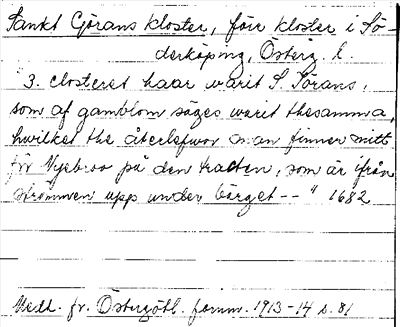 Sankt Görans kloster, förr kloster i Sö-
derköping, Österg. l.
"3. closteret haar warit S. Görans,
som af gamblom säges warit thesamma,
hwilket the återlefwor man finner mitt
för Nyebroo på den kalten, som är ifrån
strömmen upp under bärget -- " 1682
Medl. fr. Östergötl. fornm. 1913-14 s. 81